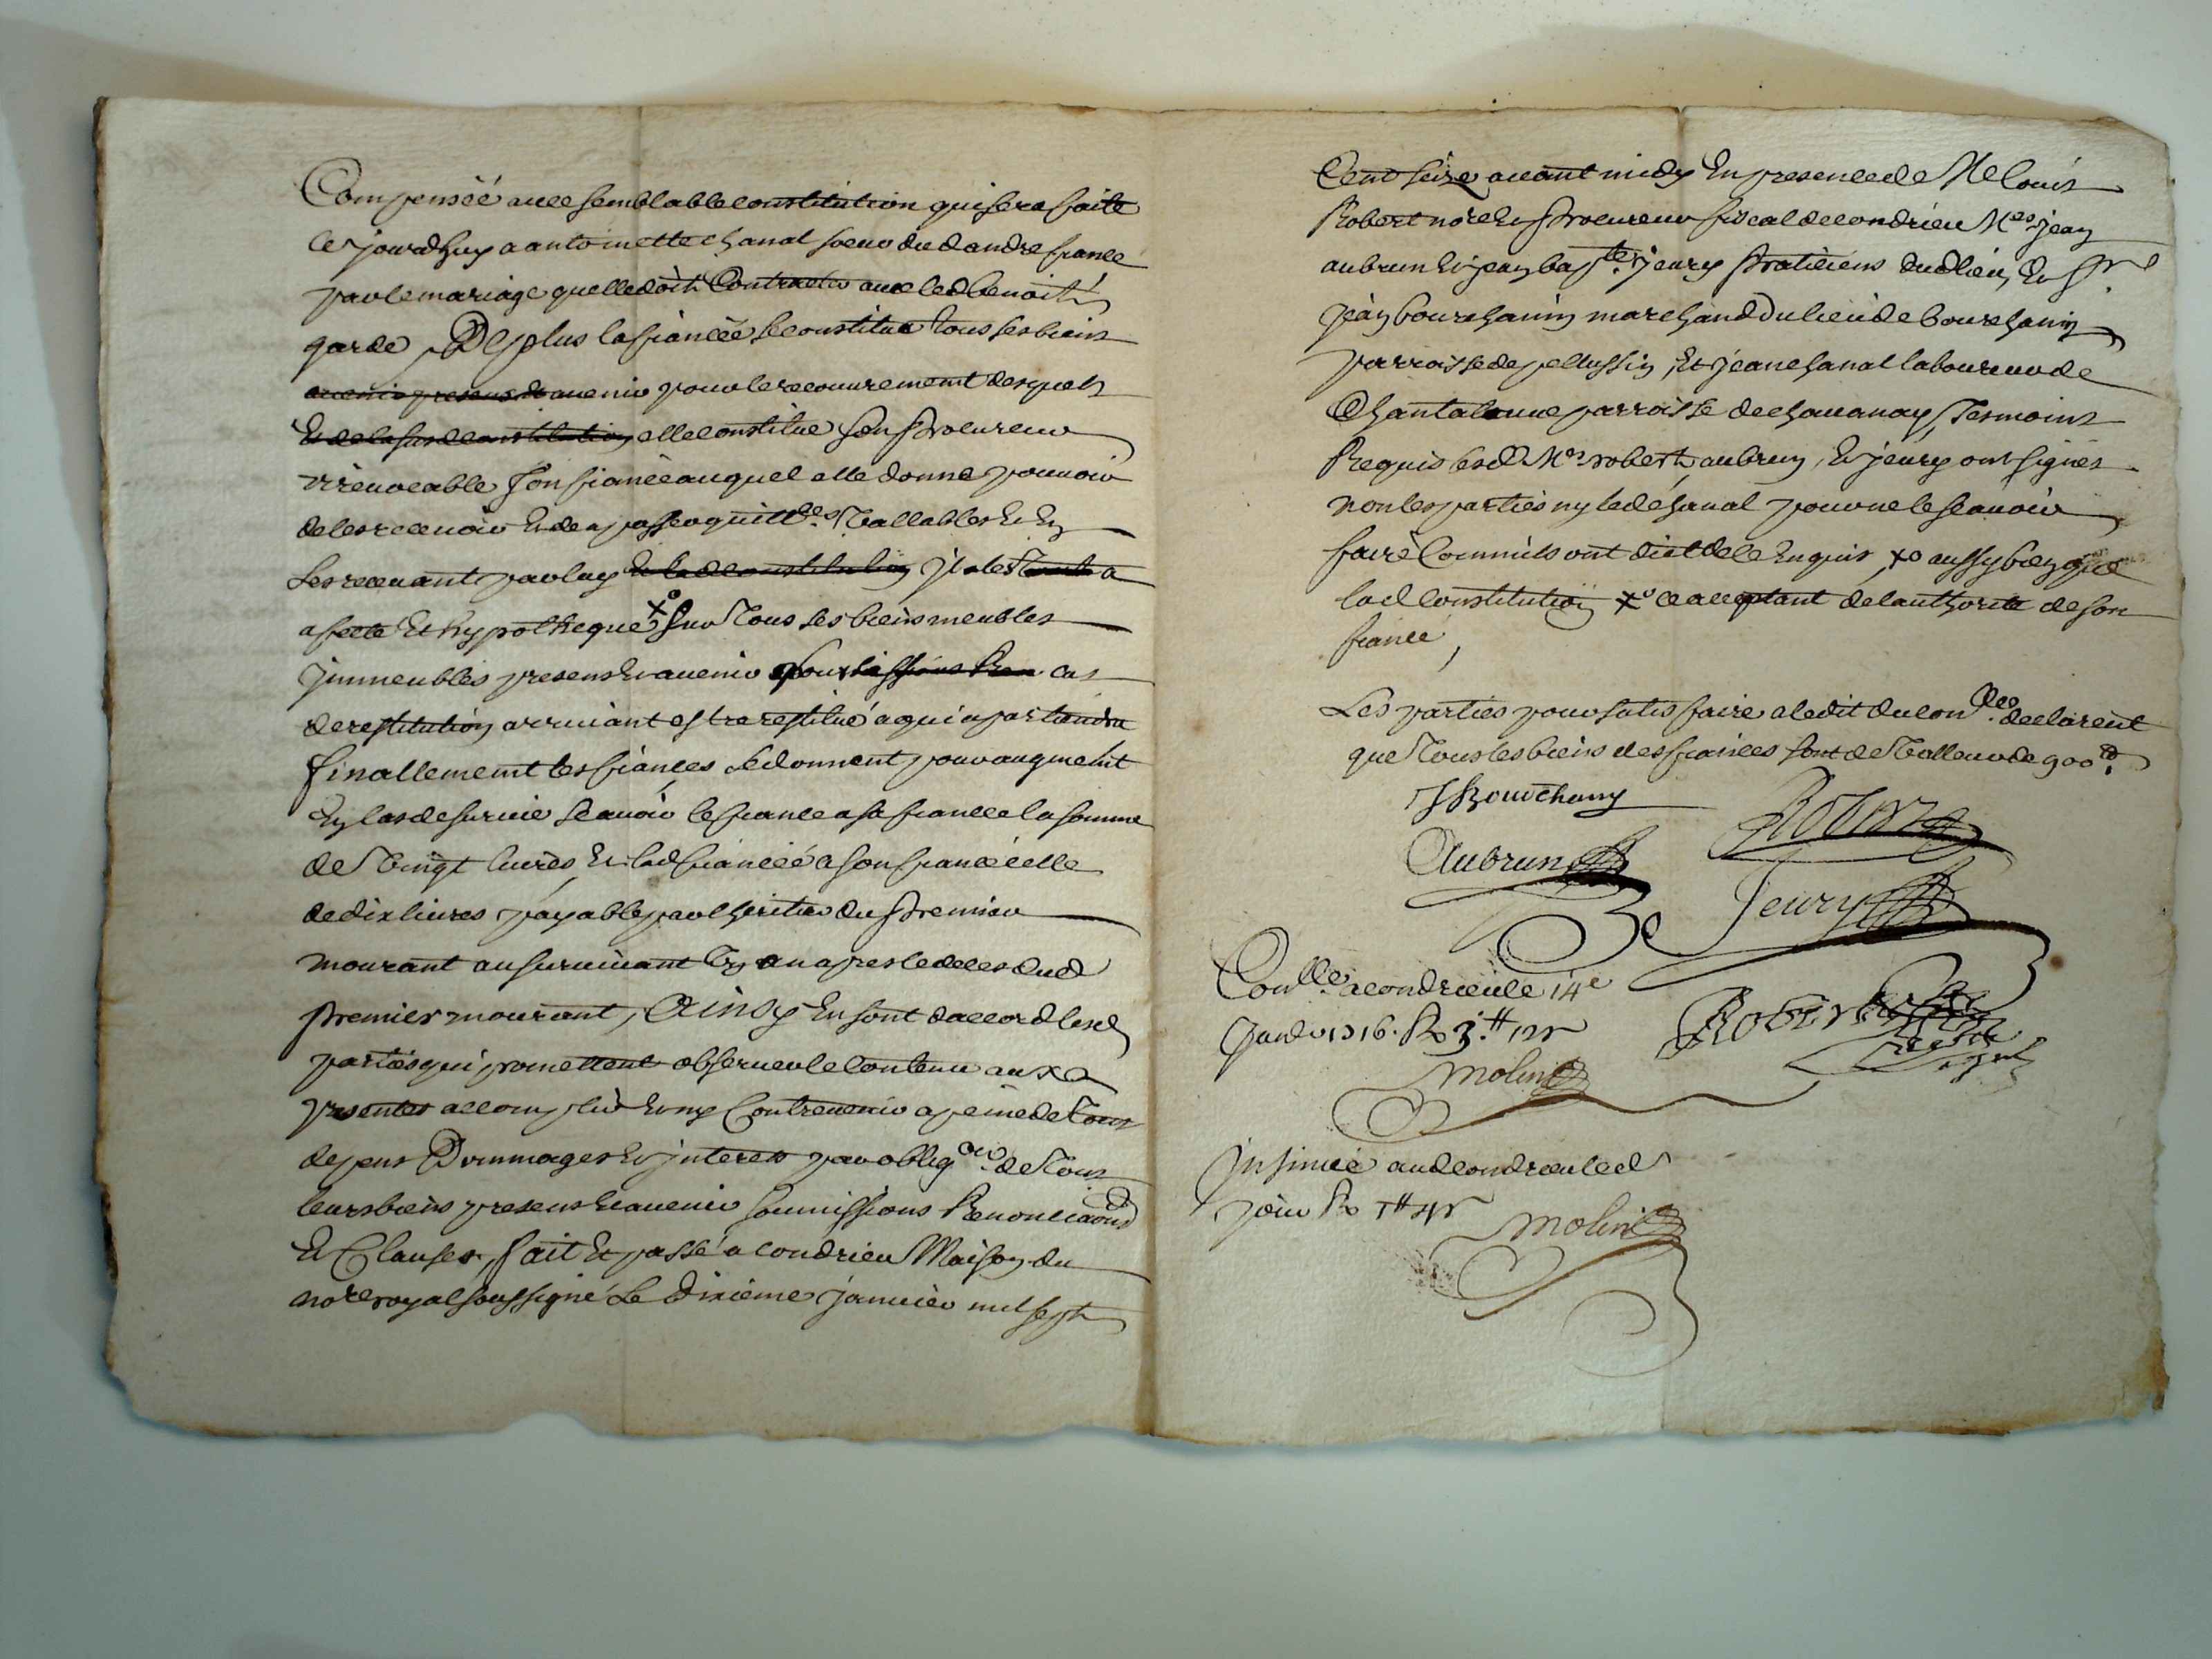 Compenséé avec semblable constitution qui sera faite
ce jourdhuy a antoinette chanal soeur dud andre fiancé
par le mariage quelle doit Contracter avec led benoit
garde, De plus la fiancéé se constitue tous ses biens
avenir presens et avenir pour le recouvrement desquels
Et de la susd constitution elle constitue son procureur
irrevocable son fiancé auquel elle donne pouvoir
de les recevoir Et de a passer quittces vallables Et En
Les recevant par luy Et lad constitution il les a
assecte Et hypotheque xo sur tous ses biens meubles
immeubles presens Et avenir pour cas
de restitution arrivant estre restitué a qui apartiendra
finallement les fiancés se donnent pour augment
En cas de survie scavoir le fiancé a sa fiancée la somme
de vingt livres, Et lad fiancéé a son fiancé celle
de dix livres payable par lheritier du premier
mourant au survivant un an apres le deces dud
premier mourant, Ainsy En sont daccord lesd
parties qui promettent observer le contenu aux
presentes accomplir Et ny Contrevenir a peine de tous
depens Dommages Et interets par obligaon de tous
leurs biens presens Et avenir soumissions Renonciaons
Et Clauses, fait Et passé a condrieu Maison du
nore royal soussigné Le dixieme janvier mil sept
Cent seize avant midy En presence de Me louis
Robert nore Et procureur fiscal de condrieu Mes jean
aubrun Et jean bapte jeury praticiens dud lieu, Et sr
jean bourchanin marchand du lieu de bourchanin
parroisse de pellussin, Et jean chanal laboureur de
Chantalouve parroisse de chavanay, Tesmoins
Requis lesd Mes robert, aubrun, Et jeury ont signés
non les parties ny led chanal pour ne le scavoir
faire Comme ils ont dict de le Enquis, xo aussy bien que
lad Constitution xo ce acceptant de lauthorité de son
fiancé,
Les parties pour satisfaire a ledit du conlle declarent
que tous les biens des fiancés sont de valleur de 900 lt
J Bourchany
Robert
Aubrun
Jeury
Conllé a condrieu le 14e
Janvr 1716. R 3 lt 12s
Robert
Molin
Insinué aud condrieu led
jour R 1 lt 4s
Molin